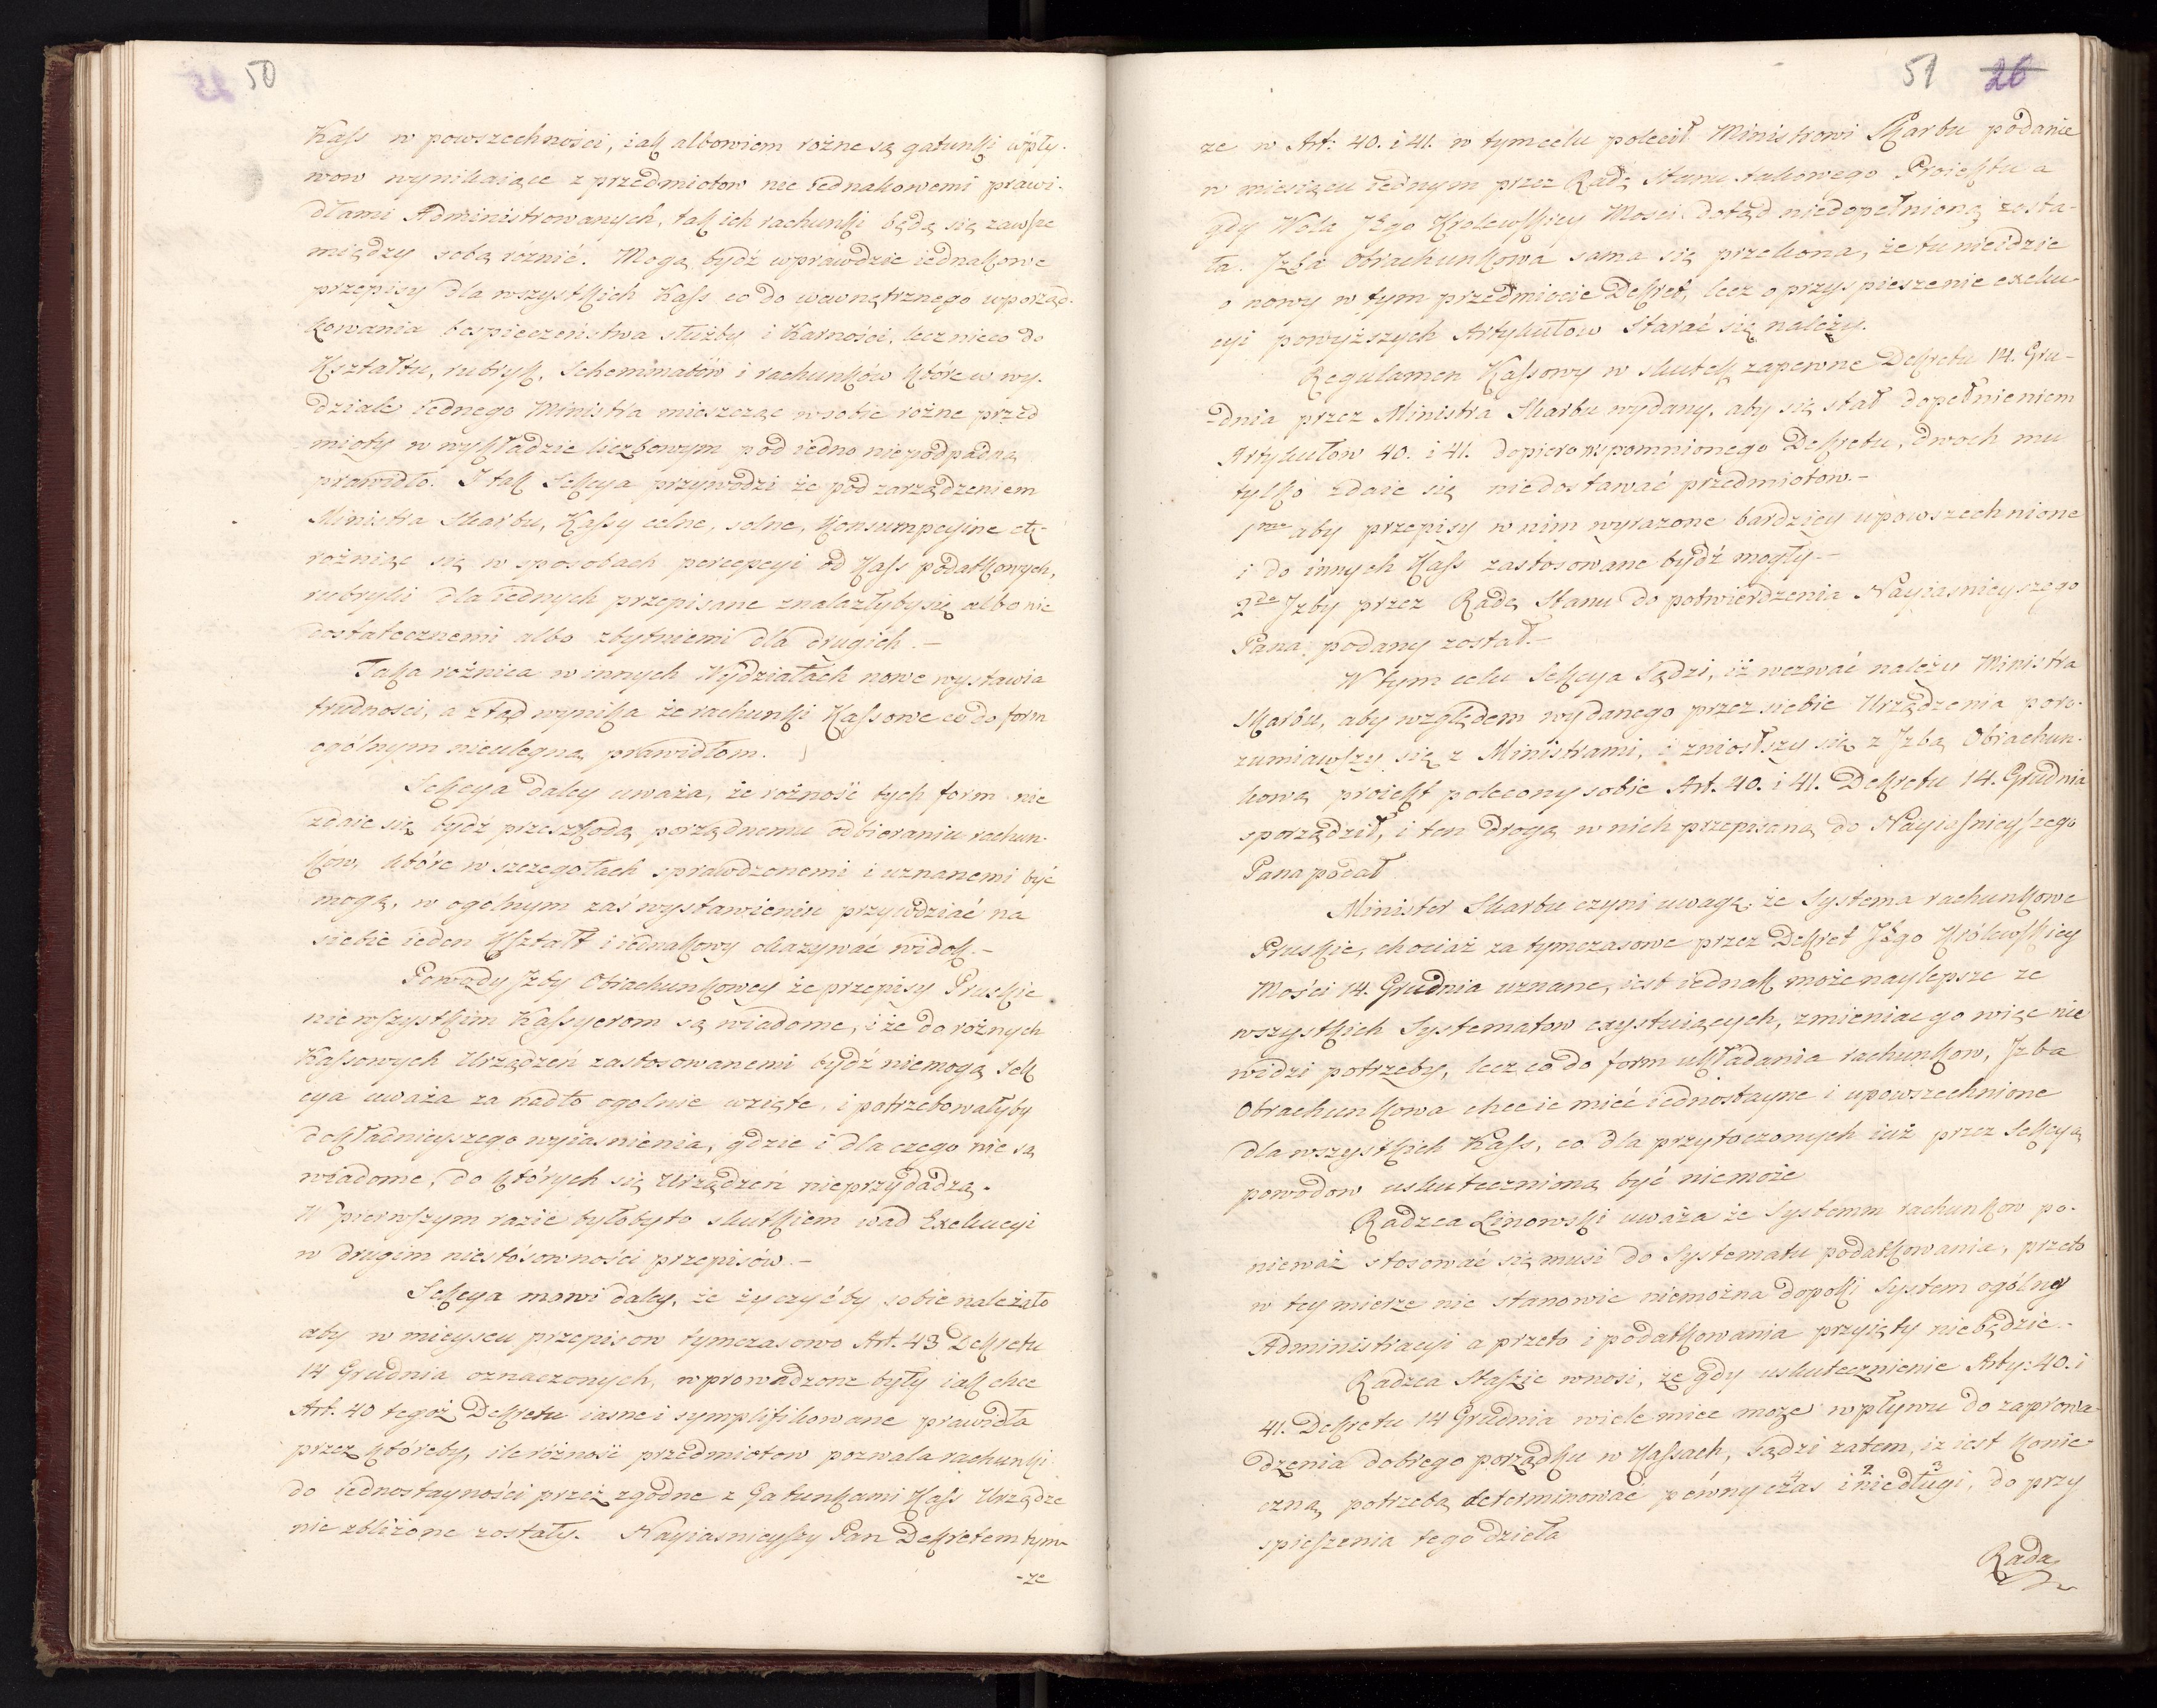 50
Kass w powszechności, iak albowiem rożne są gatunki wpły-
wow wynikaiące z przedmiotow nie iednakowemi prawi-
dłami Administrowanych, tak ich rachunki będą się zawsze
między sobą różnić. Mogą bydź wprawdzie iednakowe
przepisy dla wszystkich Kass co do wewnętrznego uporząd-
kowania bespieczeństwa służby i Karności, lecz nieco do
Kształtu, rubryk, Schemmatów i rachunków które w wy-
dziale iednego Ministra mieszcząc w sobie rożne przed
mioty w wykładzie liczbowym pod iedno niepodpadaią
prawidło. I tak Sekcya przywodzi że pod zarządzeniem
Ministra Skarbu, Kassy celne, solne, Konsumpcyine etc
rożniąc się w sposobach percepcyi od Kass podatkowych,
rubryki dla iednych przepisane znalazłyby się albo nie
dostatecznemi albo zbytniemi dla drugich.–
Taka rożnica w innych Wydziałach nowe wystawia
trudności, a ztąd wynika że rachunki Kassowe co do form
ogólnym nieulegną prawidłom.
Sekcya daley uważa, że rożność tych form nie
zdaie się bydź przeszkodą porządnemu odbieraniu rachun-
ków, które w szczegołach sprawdzonemi i uznanemi być
mogą, w ogólnym zaś wystawieniu przywdziać na
siebie ieden Kształt i iednakowy okazywać widok.–
Powody Izby Obrachunkowey że przepisy Pruskie
nie wszystkim Kassyerom są wiadome, i że do rożnych
Kassowych Urządzeń zastosowanemi bydź niemogą Sek
cya uważa za nadto ogolnie wzięte, i potrzebowałyby
dokładnieyszego wyiasnienia, gdzie i dla czego nie są
wiadome, do których się Urządzeń nieprzydadzą.
W pierwszym razie byłoby to skutkiem wad Exekucyi
w drugim niestósowności przepisów.–
Sekcya mówi daley, że życzyćby sobie należało
aby w mieyscu przepisow tymczasowo Art. 43 Dekretu
14 Grudnia oznaczonych, wprowadzone były iak chce
Art. 40 tegoż Dekretu iasne i symplifikowane prawidła
przez któreby, ile różność przedmiotow pozwala rachunki
do iednostayności przez zgodne z Gatunkami Kass Urządze
nie zbliżone zostały. Nayiasnieyszy Pan Dekretem tym-
-ze
51 26
ze w Art: 40. i 41. w tym celu polecił Ministrowi Skarbu podanie
w miesiącu iednym przez Radę Stanu takowego Proiektu a
gdy Wola Jego Krolewskiey Mosci dotąd niedopełnioną zosta-
ła. Izba Obrachunkowa sama się przekona, że tu nieidzie
o nowy w tym przedmiocie Dekret, lecz o przyspieszenie exeku-
cyi powyższych Artykułow starać się należy.
Regulamen Kassowy w skutek zapewne Dekretu 14. Gru-
dnia przez Ministra Skarbu wydany, aby się stał dopełnieniem
Artykułow 40. i 41. dopiero wspomnionego Dekretu, dwoch mu
tylko zdaie się niedostawać przedmiotow.–
1mo aby przepisy w nim wyrazone bardziey upowszechnione
i do innych Kass zastosowane bydź mogły.–
2do Izby przez Radę Stanu do potwierdzenia Nayiasnieyszego
Pana podany został.–
W tym celu Sekcya sądzi, iż wezwać należy Ministra
Skarbu, aby względem wydanego przez siebie Urządzenia poro-
zumiawszy się z Ministrami, i zniosłszy się z Izbą Obrachun-
kową proiekt polecony sobie Art. 40. i 41. Dekretu 14. Grudnia
sporządził, i ten drogą w nich przepisaną do Nayiasnieyszego
Pana podał
Minister Skarbu czyni uwagę, że Systema rachunkowe
Pruskie, chociaż za tymczasowe przez Dekret Jego Królewskiey
Mości 14. Grudnia uznane, iest iednak może naylepsze ze
wszystkich Systematow exystuiących, zmieniac go więc nie
widzi potrzeby, lecz co do form układania rachunkow, Izba
Obrachunkowa chce ie mieć iednostayne i upowszechnione
dla wszystkich Kass, co dla przytoczonych iuż przez Sekcyą
powodow uskutecznioną być niemoże
Radzca Linowski uważa że Systemm rachunkow po-
nieważ stosować się musi do Systematu podatkowania, przeto
w tey mierze nic stanowic niemożna dopoki System ogólny
Administracyi a przeto i podatkowania przyięty niebędzie.–
Radzca Staszic wnosi, że gdy uskutecznienie Arty: 40. i
41. Dekretu 14 Grudnia wiele miec może wpływu do zaprowa-
dzenia dobrego porządku w Kassach, sądzi zatem, iż iest Konie-
czną potrzebą determinować pewny czas i niedługi, do przy
spieszenia tego dzieła
Rada